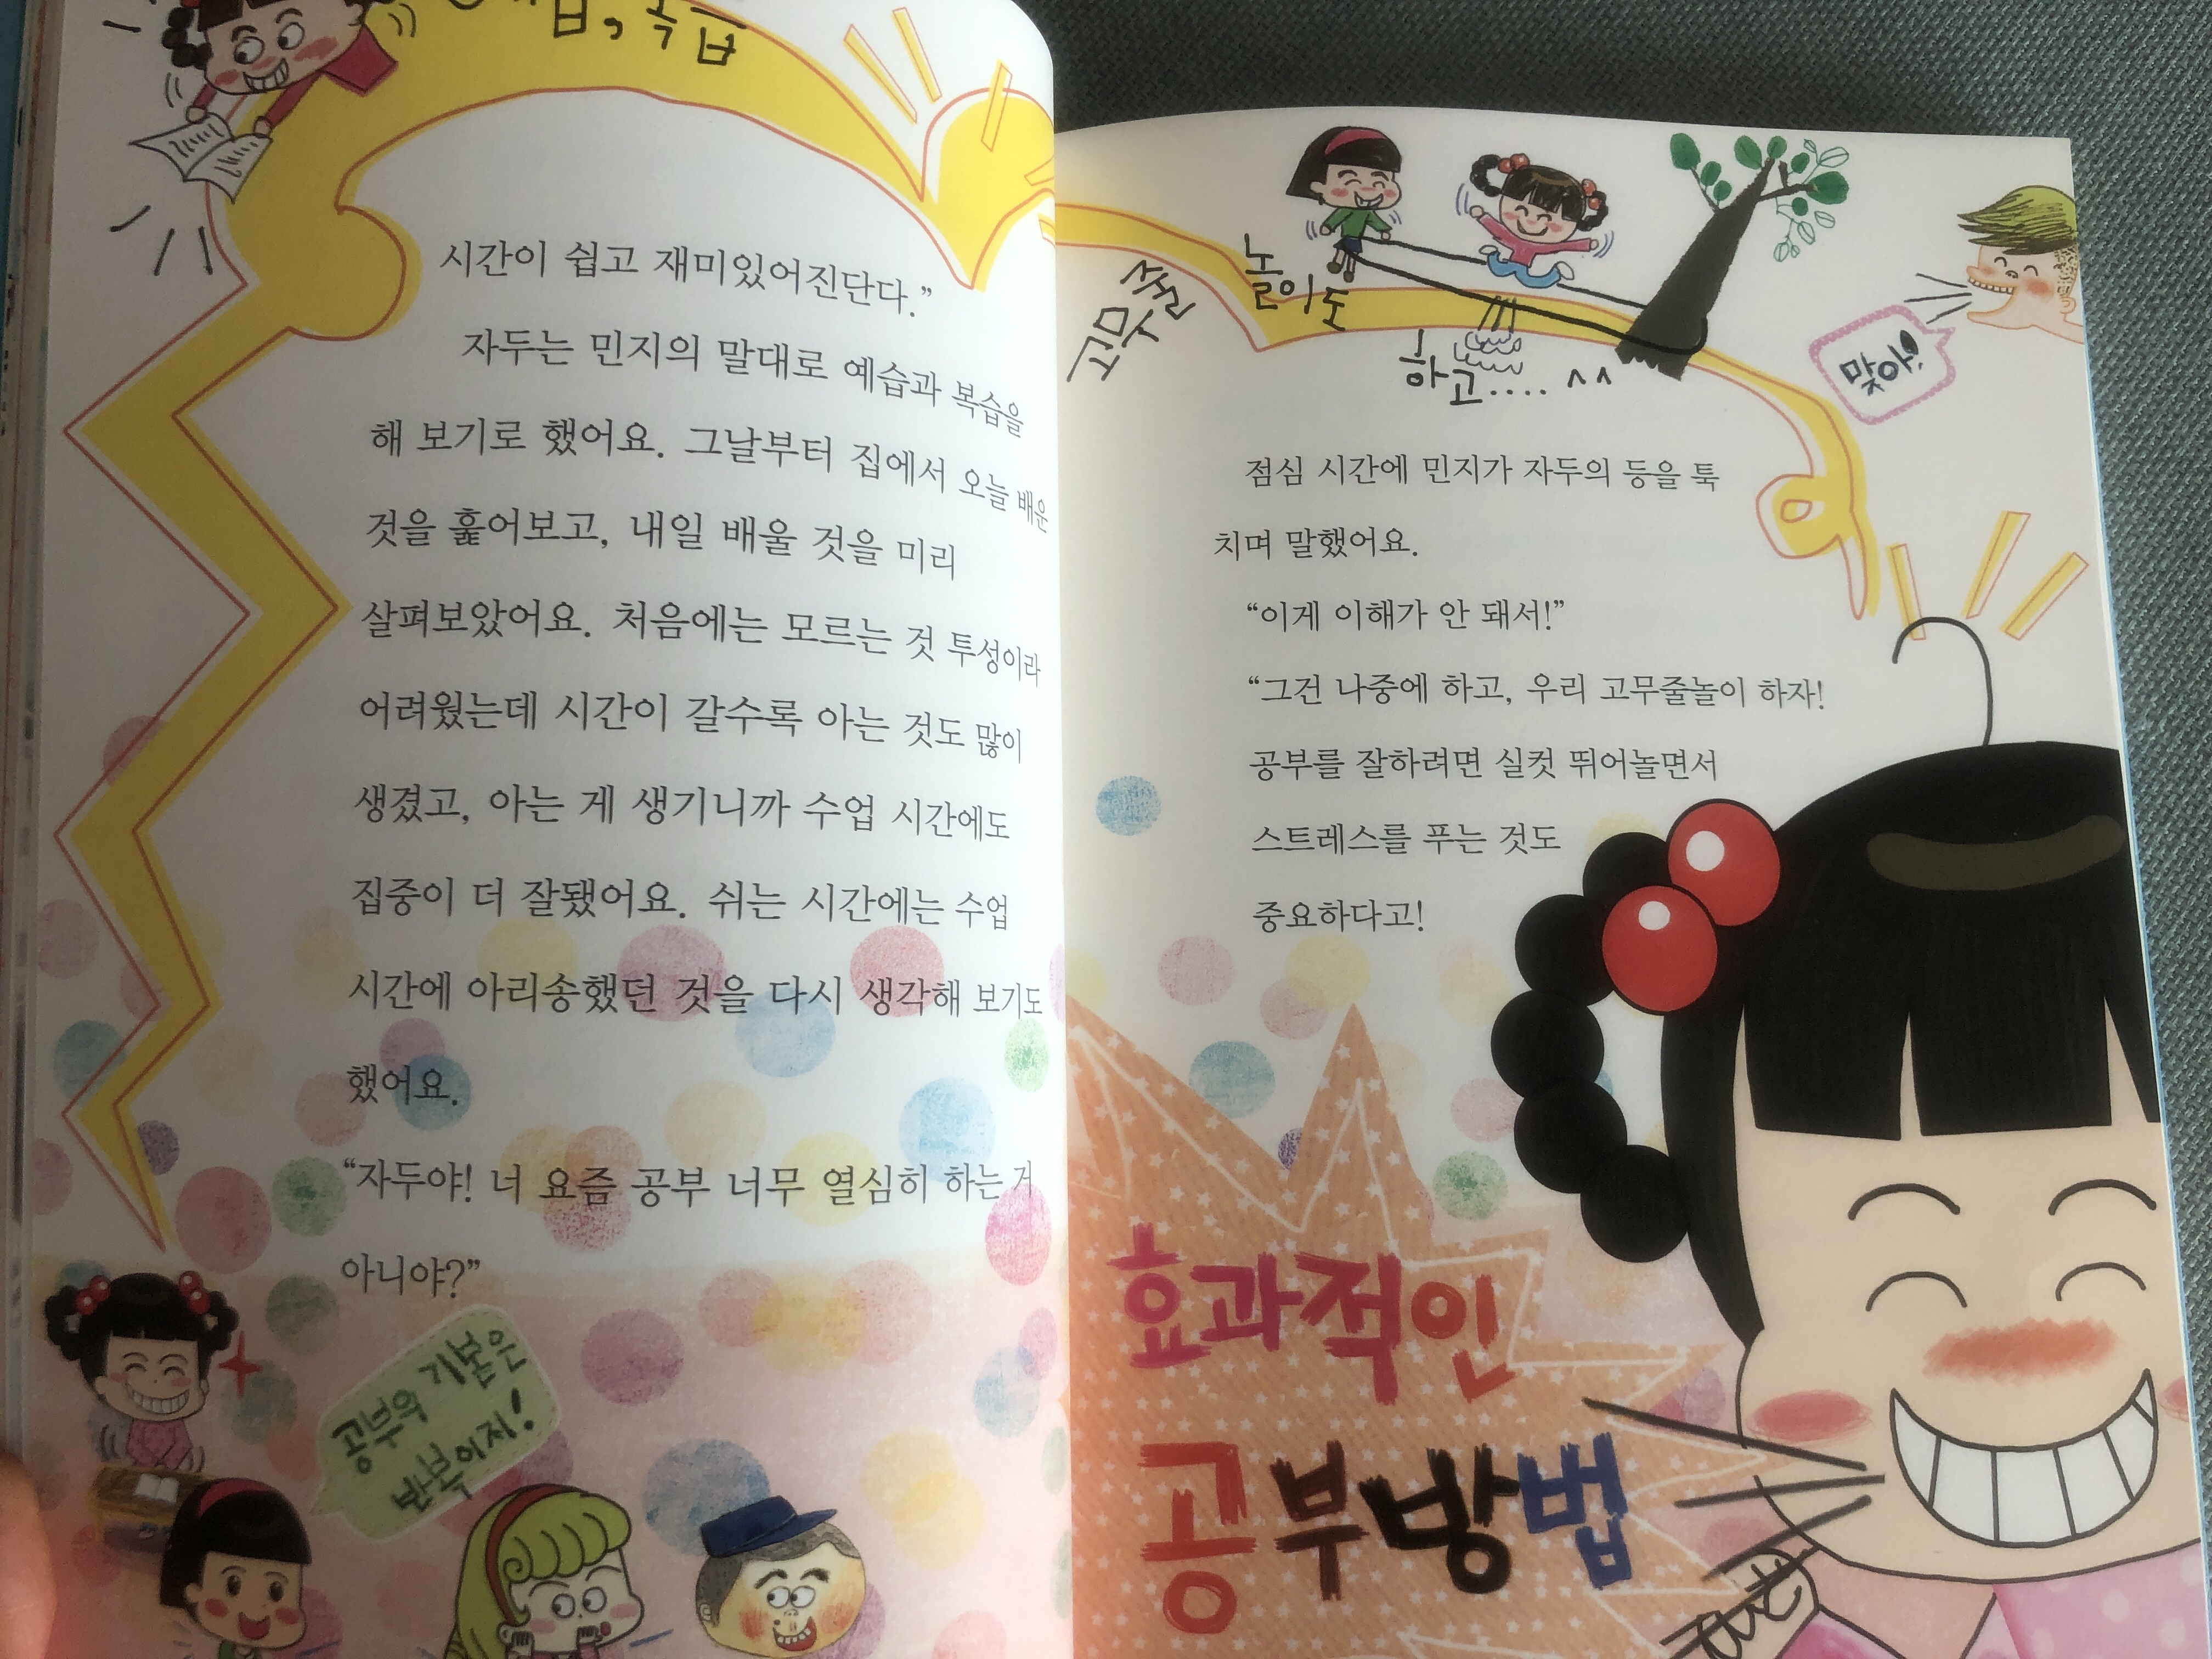 복습
시간이 쉽고 재미있어진단다.”
자두는 민지의 말대로 예습과 복습을
해 보기로 했어요. 그날부터 집에서 오늘 배운
것을 훑어보고, 내일 배울 것을 미리
살펴보았어요. 처음에는 모르는 것 투성이라
어려웠는데 시간이 갈수록 아는 것도 많이
생겼고, 아는 게 생기니까 수업 시간에도
집중이 더 잘됐어요. 쉬는 시간에는 수업
시간에 아리송했던 것을 다시 생각해 보기도
했어요.
“자두야! 너 요즘 공부 너무 열심히 하는 거
아니야?”
공부의 기본은
반복이지!
고무줄
놀이도
하고.... ^^
맞아!
점심 시간에 민지가 자두의 등을 툭
치며 말했어요.
“이게 이해가 안 돼서!”
“그건 나중에 하고, 우리 고무줄놀이 하자!
공부를 잘하려면 실컷 뛰어놀면서
스트레스를 푸는 것도
중요하다고!
효과적인
공부방법